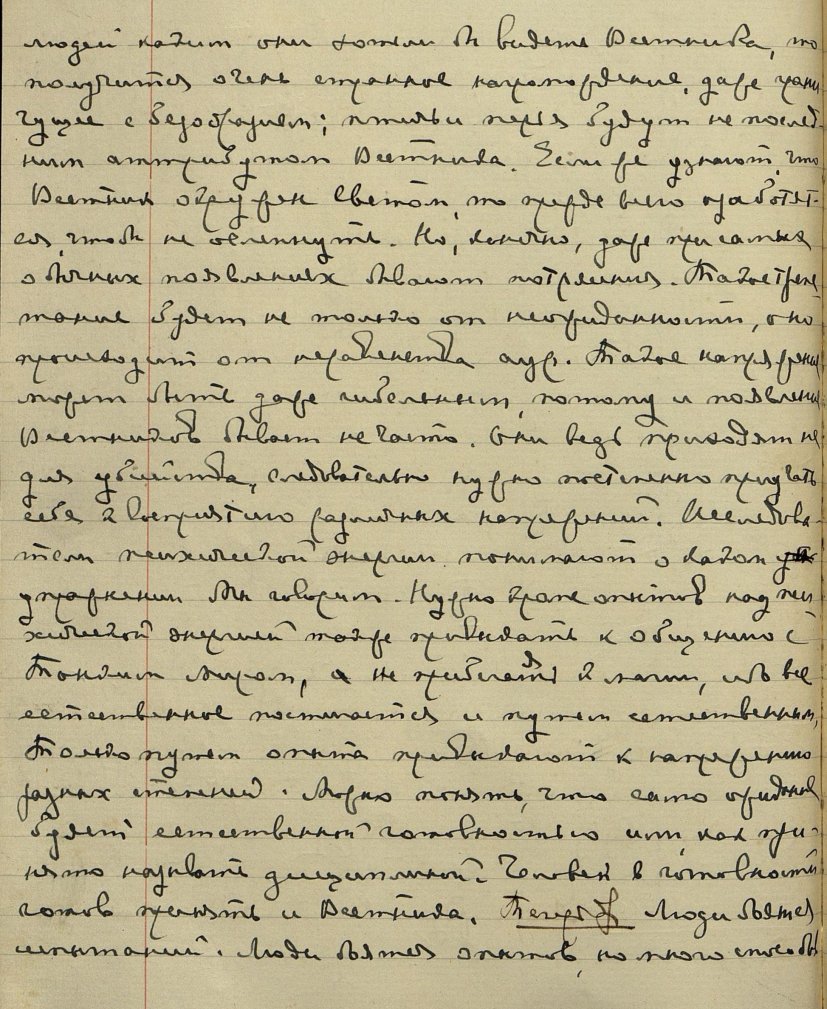 людей каким они хотели бы видеть Вестника, то
получится очень странное нагромождение, даже грани
чущее с безобразием; крылья и перья будут не послед-
ним аттрибутом Вестника. Если же узнают, что
Вестник окружен Светом, то прежде всего озаботят-
ся, чтобы не ослепнуть. Но, конечно, даже при самых
обычных появлениях бывают потрясения. Такое трепе-
тание будет не только от неожиданности, оно
происходит от неравенства аур. Такое напряжение
может быть даже гибельным, потому и появления
Вестников бывают не часто. Они ведь приходят не
для убийства, следовательно нужно постепенно приучать
себя к восприятию различных напряжений. Исследова-
тели психической энергии понимают о каком
упражнении Мы говорим. Нужно кроме опытов над пси-
хической энергией также привыкать к общению с
Тонким Миром, а не прибегать к магии, ибо все
естественное постигается и путем естественным,
Только путем опыта привыкают к напряжению
разных степеней. Можно понять, что само ожидание
будет естественной готовностью или, как при-
нято называть дисциплиной. Человек в готовности
готов принять и Вестника. Люди боятся
испытаний. Люди боятся опытов, но много способов